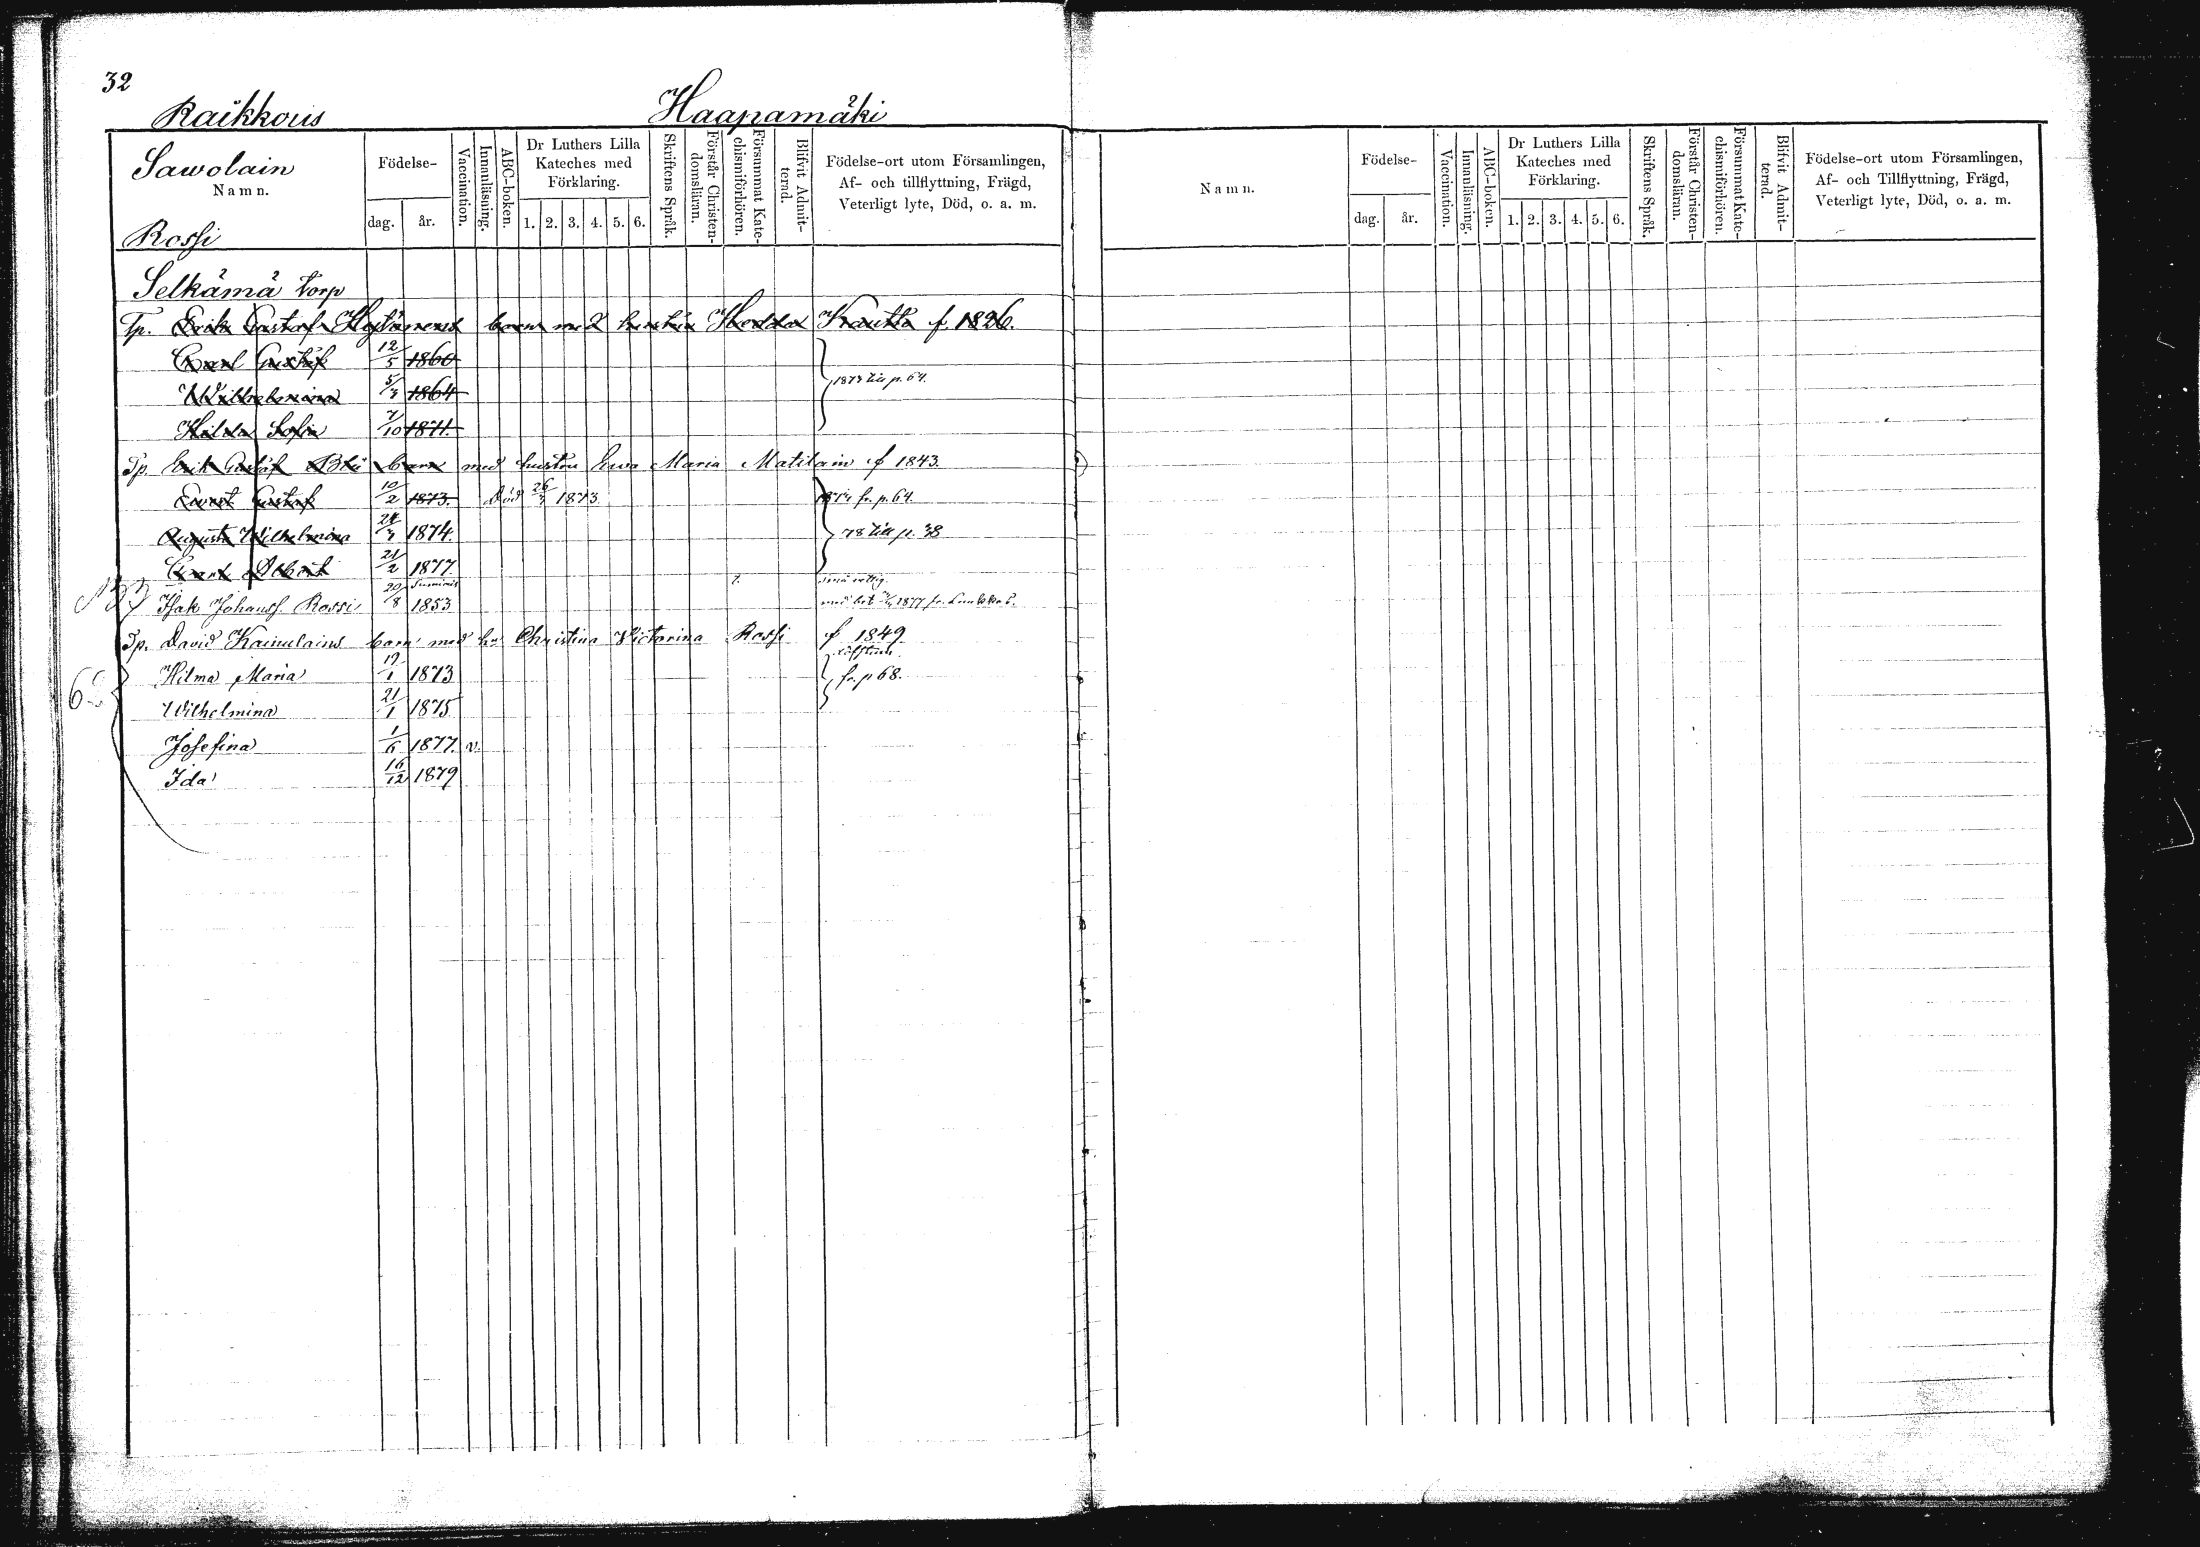 32
Räikkönis Haapamäki
Sawolain
Namn.
Rossi
Födelse-
dag. år.
Vaccination.
Innanläsning.
ABC-boken.
Dr Luthers Lilla Kateches med Förklaring.
1. 2. 3. 4. 5. 6.
Skriftens Språk.
Förstår Christen-domsläran.
Försummat Kate-chismiförhören.
Blifvit Admit-terad.
Födelse-ort utom Församlingen,
Af- och tillflyttning, Frägd,
Veterligt lyte, Död, o. a. m.
Selkämä Torp
Tp. Erik Gustaf barn med hustru Hedda Krautta f. 1826.
Carl Gustaf 12/5 1860
Wilhelmina 1864 1873 till p. 64.
Hilda Sofia 7/10 1871.
Tp. Erik Gustaf barn med hustru Ewa Maria Matilain f 1843.
Ewert Gustaf 10/2 1873. Död 1873 fr. p. 64.
Augusta Wilhelmina 1874. 78 till p. 38
21/2 1877
Isak Johanss. Rossi 20/8 1853 med bet 1877 fr.
Tp. David Kainulains barn med hu Christina Victorina Rossi f 1849
Hilma Maria 19/1 1873 fr. p 68.
Wilhelmina 21/1 1875
Josefina 1/6 1877. v.
Ida 16/12 1879
Namn.
Födelse-
dag. år.
Vaccination.
Innanläsning.
ABC-boken.
Dr Luthers Lilla Kateches med Förklaring.
1. 2. 3. 4. 5. 6.
Skriftens Språk.
Förstår Christen-domsläran.
Försummat Kate-chismiförhören.
Blifvit Admit-terad.
Födelse-ort utom Församlingen,
Af- och Tillflyttning, Frägd,
Veterligt lyte, Död, o. a. m.